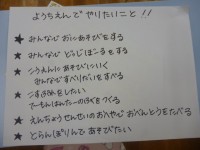 ようちえんで やりたいこと!!
★ みんなで おにあそびをする
★ みんなで どっじぼーるをする
★ こうえんに あそびにいく
みんなですべりだいをすべる
★ こままわしをしたい
★ えんちょうせんせいのおへやで おべんとうをたべる
★ とらんぽりんで あそびたい